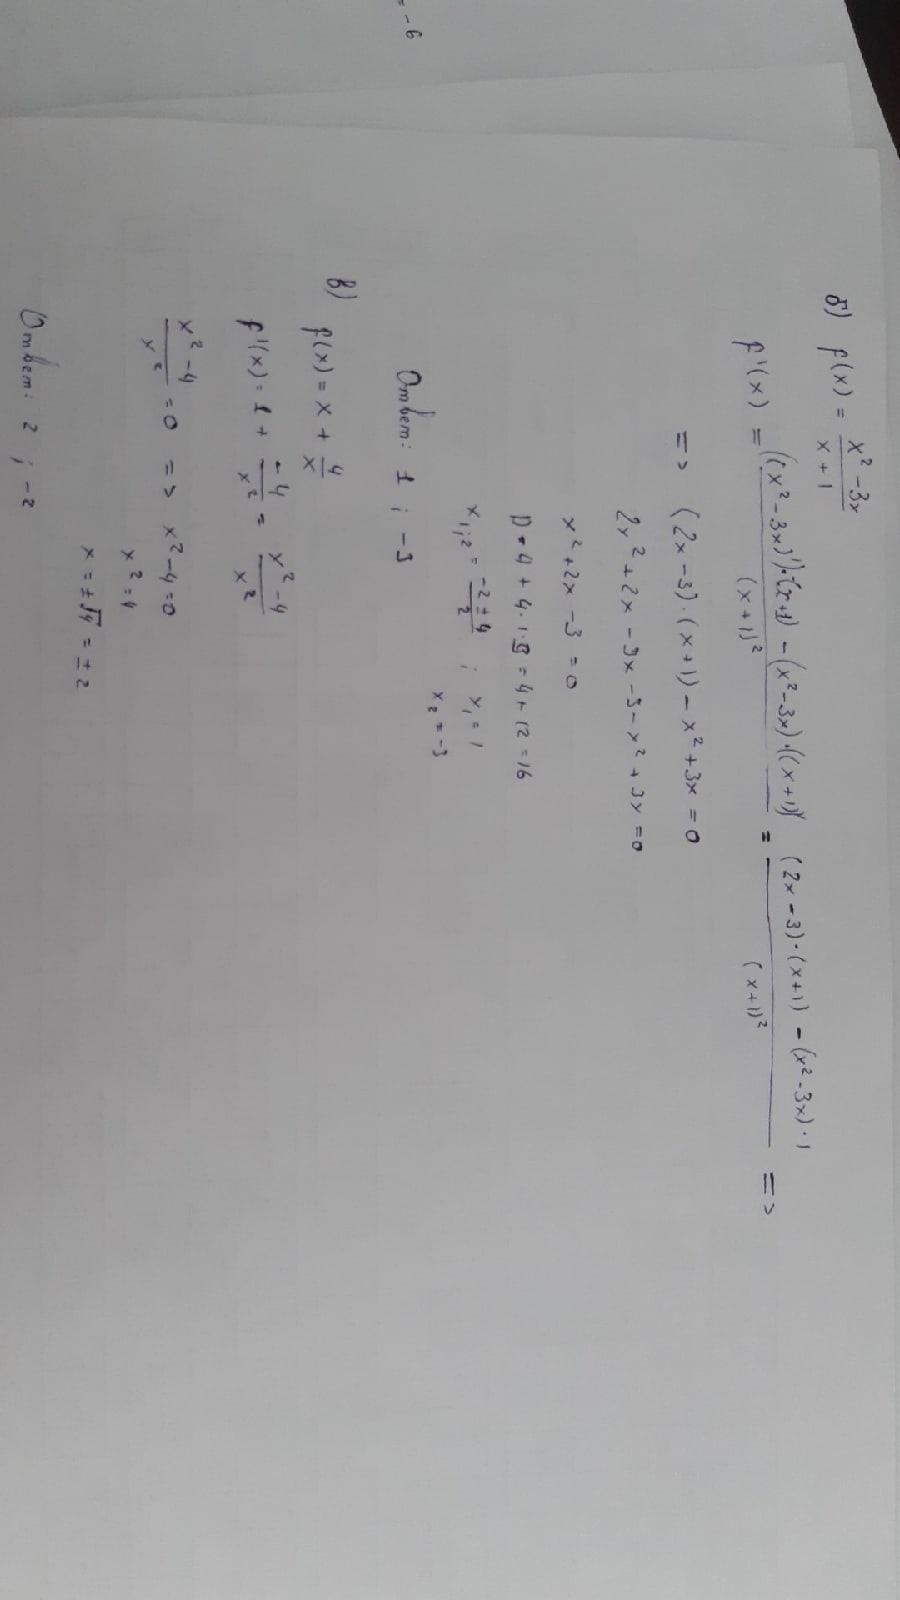 = -6
б) f(x) = (x² - 3x)/(x + 1)
f'(x) = ((x² - 3x)')·(x+1) - (x² - 3x)·((x+1)')/(x+1)² = (2x - 3)·(x+1) - (x² - 3x)·1/(x+1)² =>
=> (2x - 3)·(x+1) - x² + 3x = 0
2x² + 2x - 3x - 3 - x² + 3x = 0
x² + 2x - 3 = 0
D = 4 + 4·1·3 = 4 + 12 = 16
x₁;₂ = (-2 ± 4)/2 ; x₁ = 1
x₂ = -3
Ответ: 1 ; -3
в) f(x) = x + 4/x
f'(x) = 1 + (-4)/x² = (x² - 4)/x²
(x² - 4)/x² = 0 => x² - 4 = 0
x² = 4
x = ±√4 = ± 2
Ответ: 2 ; -2